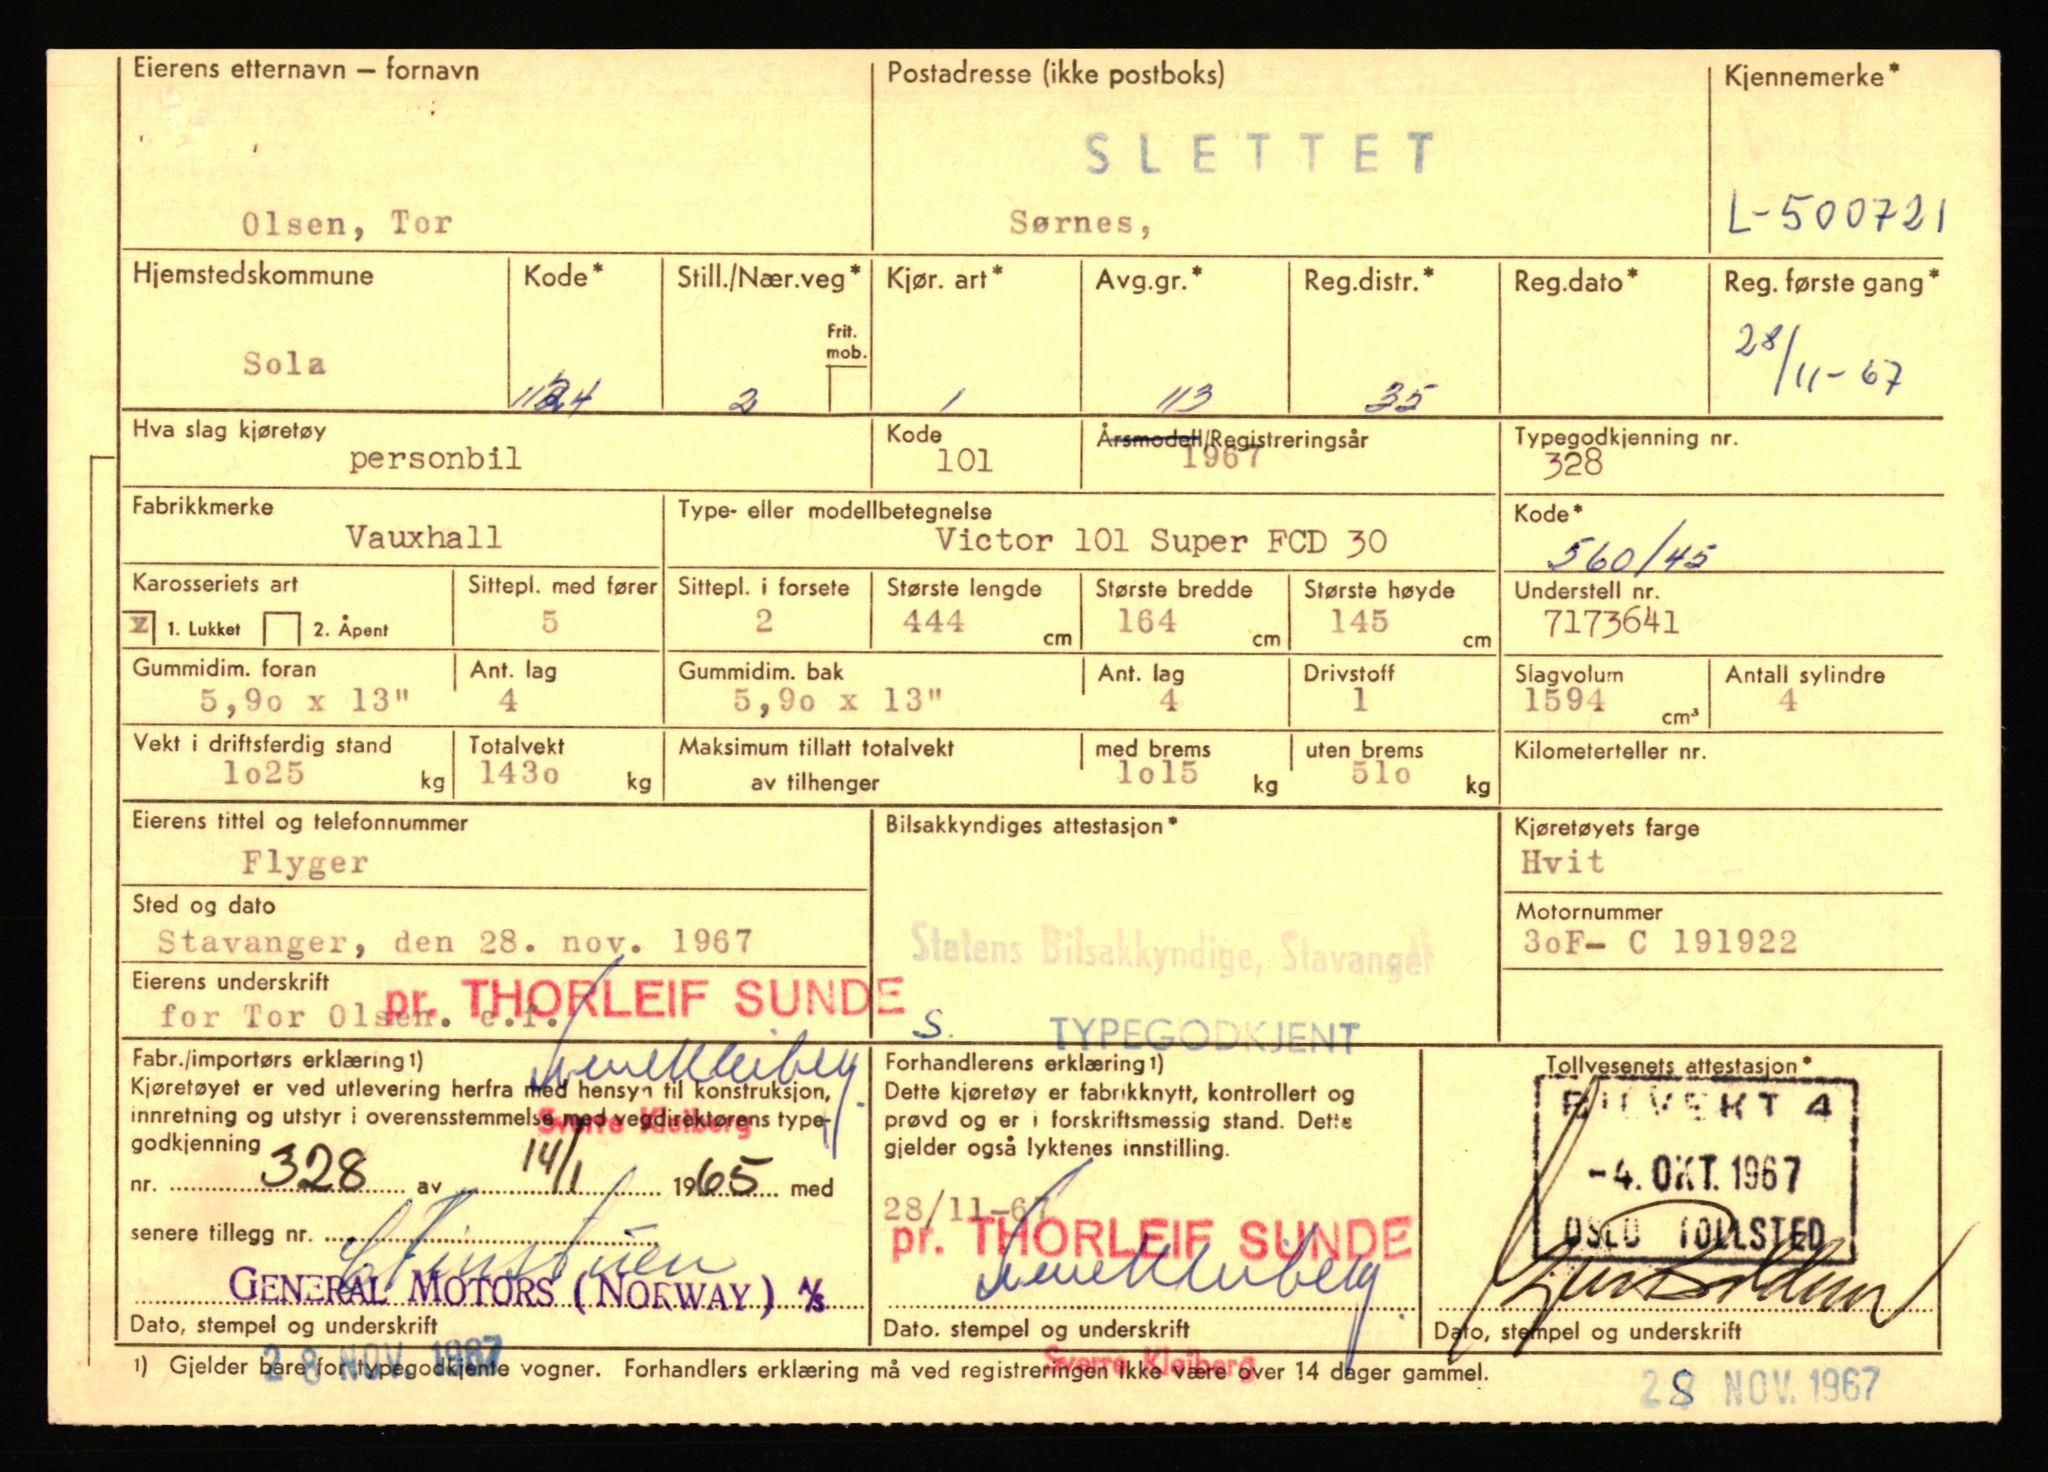 Eierens etternavn – fornavn
Postadresse (ikke postboks)
Kjennemerke*
SLETTET
Olsen, Tor
Sørnes,
L-500721
Hjemstedskommune
Kode*
Still./Nær.veg*
Kjør. art*
Avg.gr.*
Reg.distr.*
Reg.dato*
Reg. første gang*
Frit. mob.
Sola
2
1
113
35
28/11-67
Hva slag kjøretøy
personbil
Kode
101
Årsmodell/Registreringsår
1967
Typegodkjenning nr.
328
Fabrikkmerke
Vauxhall
Type- eller modellbetegnelse
Victor 101 Super FCD 30
Kode*
560/45
Karosseriets art
X 1. Lukket 2. Åpent
Sittepl. med fører
5
Sittepl. i forsete
2
Største lengde
444 cm
Største bredde
164 cm
Største høyde
145 cm
Understell nr.
7173641
Gummidim. foran
5,9o x 13"
Ant. lag
4
Gummidim. bak
5,9o x 13"
Ant. lag
4
Drivstoff
1
Slagvolum
1594 cm³
Antall sylindre
4
Vekt i driftsferdig stand
1o25 kg
Totalvekt
143o kg
Maksimum tillatt totalvekt
av tilhenger
med brems
1o15 kg
uten brems
51o kg
Kilometerteller nr.
Eierens tittel og telefonnummer
Flyger
Bilsakkyndiges attestasjon*
Kjøretøyets farge
Hvit
Sted og dato
Stavanger, den 28. nov. 1967
Statens Bilsakkyndige, Stavanger
Motornummer
3oF- C 191922
Eierens underskrift
pr. THORLEIF SUNDE
for Tor Olsen. e.f.
S.
TYPEGODKJENT
Sverre Kleiberg
Sverre Kleiberg
Fabr./importørs erklæring 1)
Kjøretøyet er ved utlevering herfra med hensyn til konstruksjon,
innretning og utstyr i overensstemmelse med vegdirektørens type-
godkjenning
nr. 328 av 14/1 1965 med
senere tillegg nr.
GENERAL MOTORS (NORWAY) A/S
Dato, stempel og underskrift
28 NOV. 1967
Forhandlerens erklæring 1)
Dette kjøretøy er fabrikknytt, kontrollert og
prøvd og er i forskriftsmessig stand. Dette
gjelder også lyktenes innstilling.
28/11-67
pr. THORLEIF SUNDE
Sverre Kleiberg
Dato. stempel og underskrift
Sverre Kleiberg
Tollvesenets attestasjon*
BILVEKT 4
-4. OKT. 1967
OSLO TOLLSTED
Dato, stempel og underskrift
1) Gjelder bare for typegodkjente vogner. Forhandlers erklæring må ved registreringen ikke være over 14 dager gammel.
28 NOV. 1967